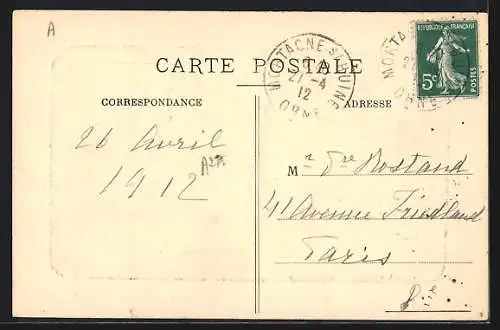 A
RÉPUBLIQUE FRANÇAISE
5c
POSTES
MORTAGNE-S-HUINE
21-4
12
ORNE
CARTE POSTALE
CORRESPONDANCE
ADRESSE
26 Avril
1912
Mr Rostand
41 Avenue Friedland
Paris